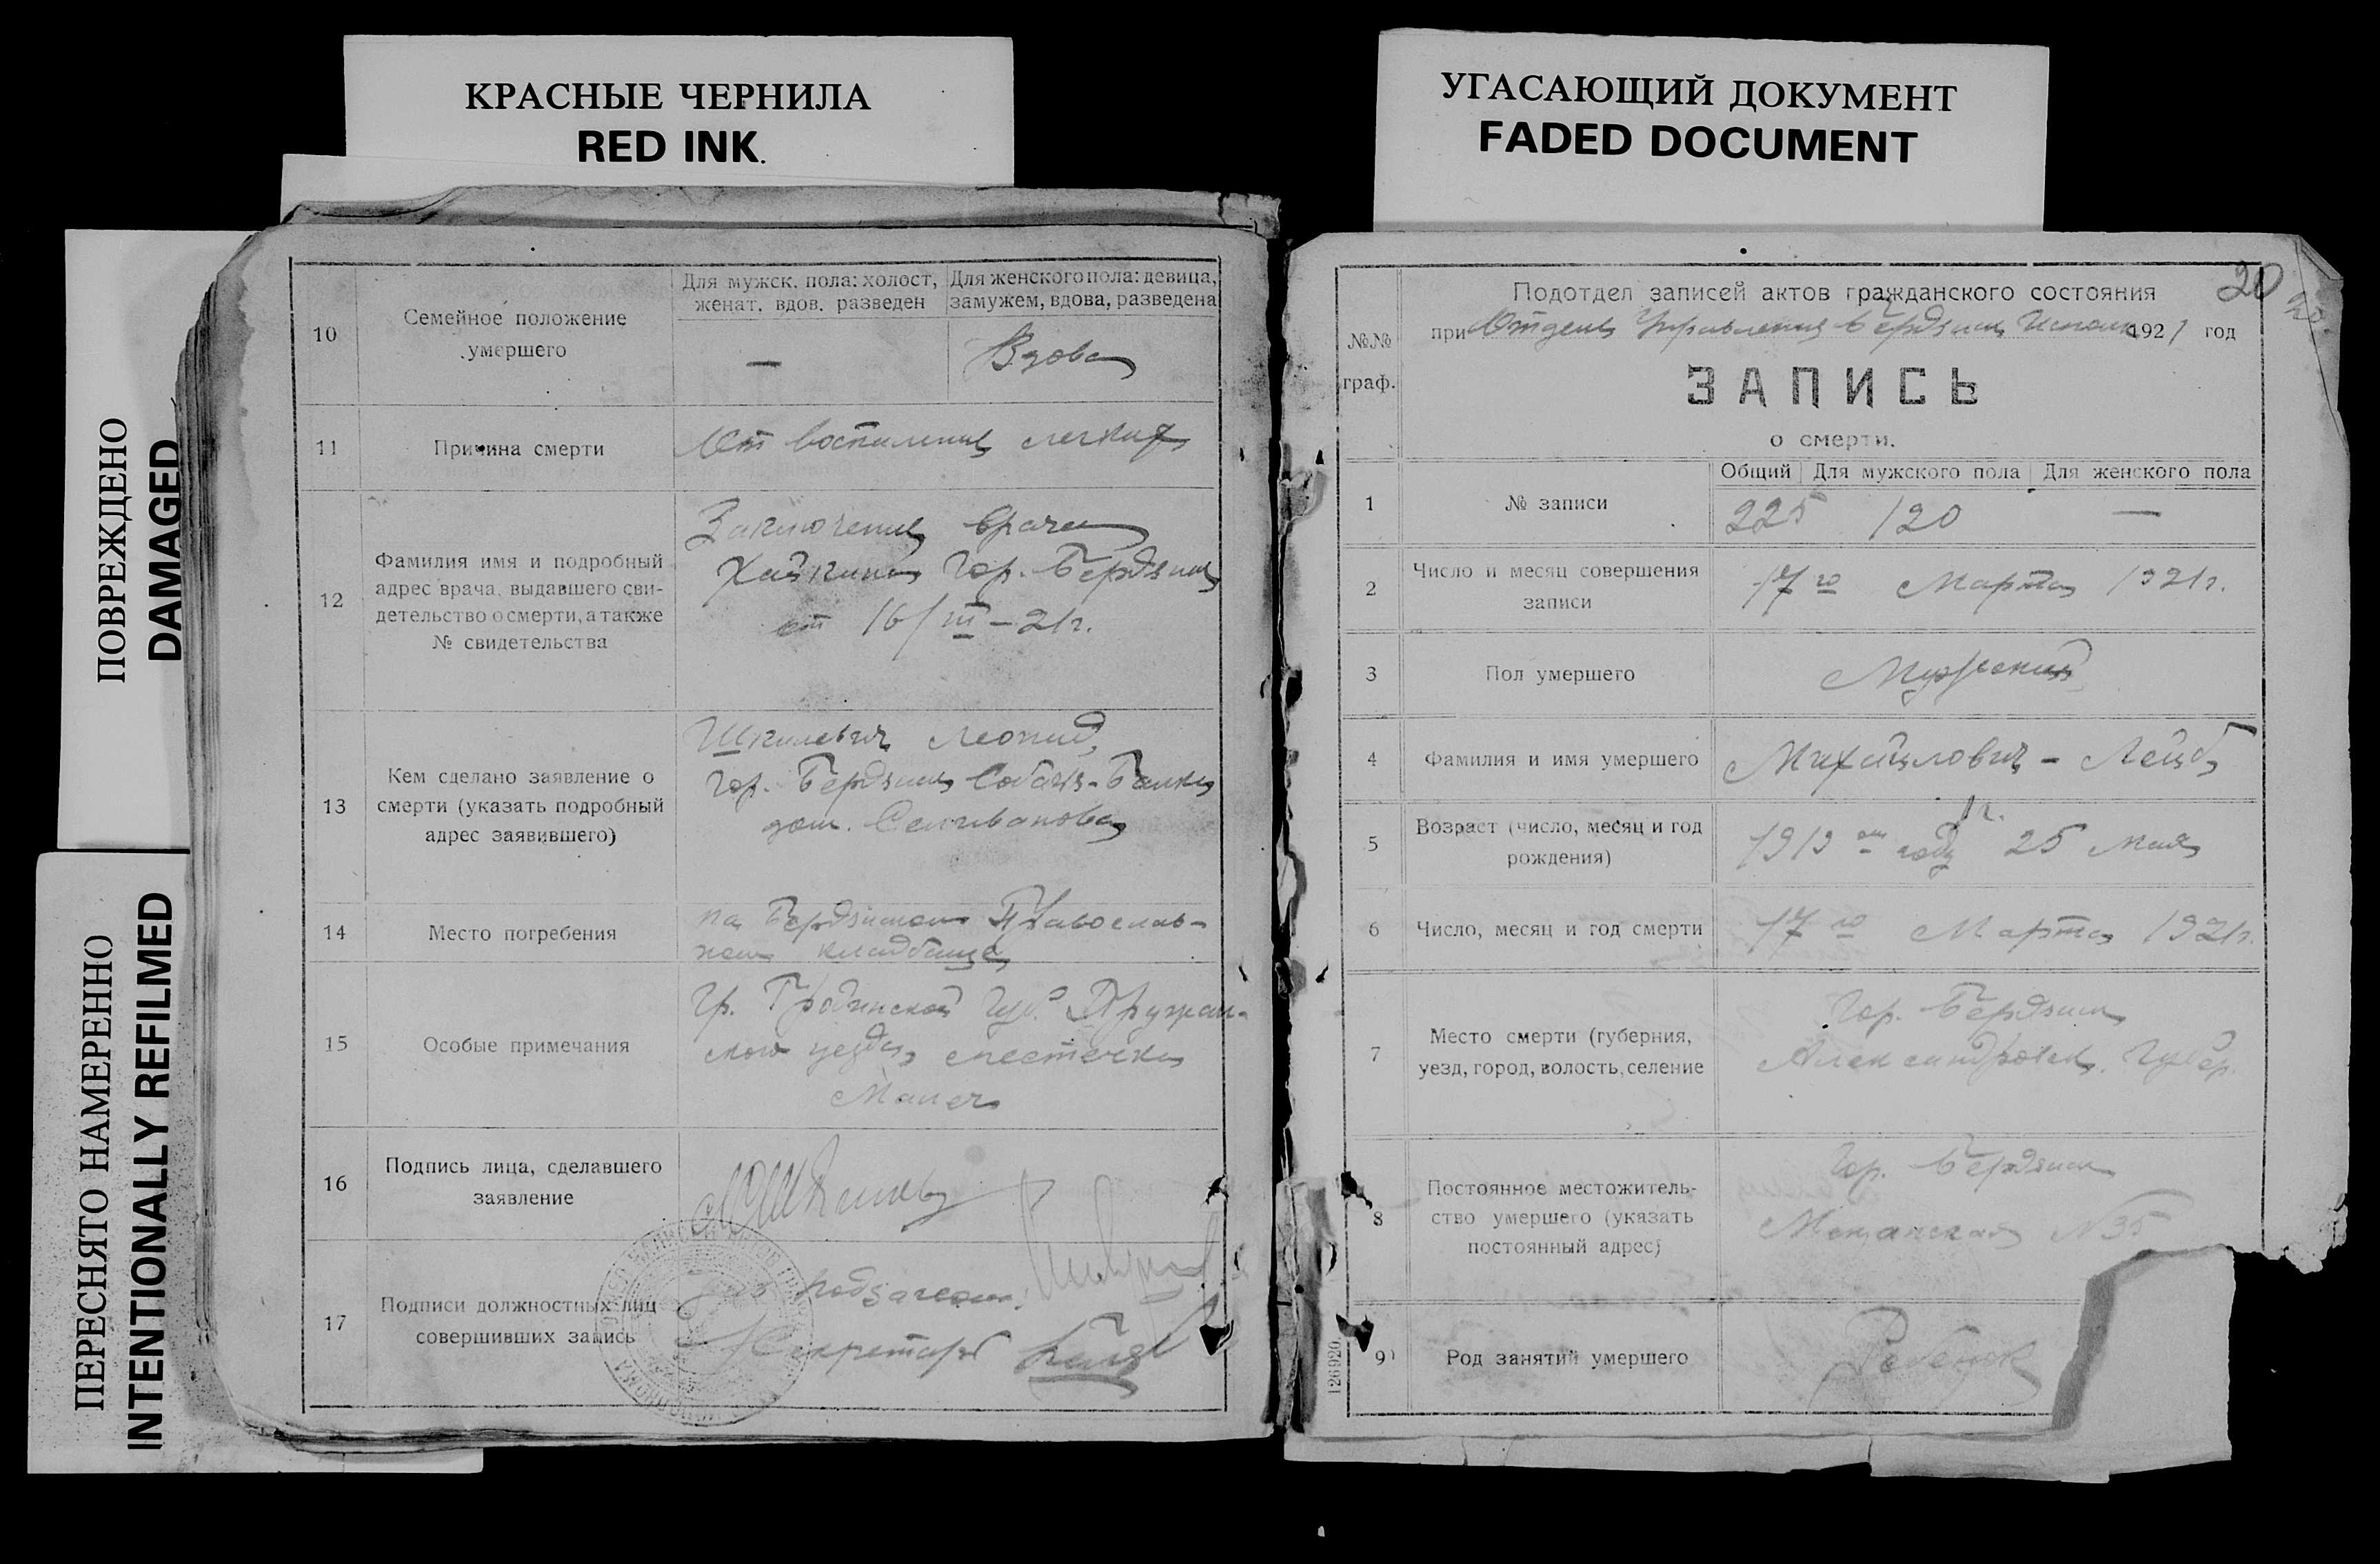 КРАСНЫЕ ЧЕРНИЛА
RED INK.
УГАСАЮЩИЙ ДОКУМЕНТ
FADED DOCUMENT
ПОВРЕЖДЕНО
DAMAGED
ПЕРЕСНЯТО НАМЕРЕННО
INTENTIONALLY REFILMED
10
Семейное положение
умершего
Для мужск. пола: холост,
женат, вдов, разведен
Для женского пола: девица,
замужем, вдова, разведена
—
Вдова
11
Причина смерти
От воспаления легких
12
Фамилия имя и подробный
адрес врача, выдавшего сви-
детельство о смерти, а также
№ свидетельства
Заключение врача
Хайкина Гор. Бердянск
от 16/III – 21г.
13
Кем сделано заявление о
смерти (указать подробный
адрес заявившего)
Шкилевич Леонид,
гор. Бердянск Собачья-Балка
дом. Селиванова
14
Место погребения
на Бердянском Православ-
ном кладбище
15
Особые примечания
Гр. Гродненской губ. Пружан-
ского уезда, местечка
Малеч
16
Подпись лица, сделавшего
заявление
17
Подписи должностных лиц
совершивших запись
Секретарь
20
20
№№
граф.
Подотдел записей актов гражданского состояния
при Отделе Управления Бердянск Исполк 1921 год
ЗАПИСЬ
о смерти.
1
№ записи
Общий
Для мужского пола
Для женского пола
225 120 —
2
Число и месяц совершения
записи
17го Марта 1921г.
3
Пол умершего
Мужской
4
Фамилия и имя умершего
Михайлович - Лейб
5
Возраст (число, месяц и год
рождения)
1г.
1919 ом году 25 мая
6
Число, месяц и год смерти
17го Марта 1921г.
7
Место смерти (губерния,
уезд, город, волость, селение
Гор. Бердянск
Александровск. Губер.
8
Постоянное местожитель-
ство умершего (указать
постоянный адрес)
Гор. Бердянск
Мещанская №35
9)
Род занятий умершего
Ребенок
126920